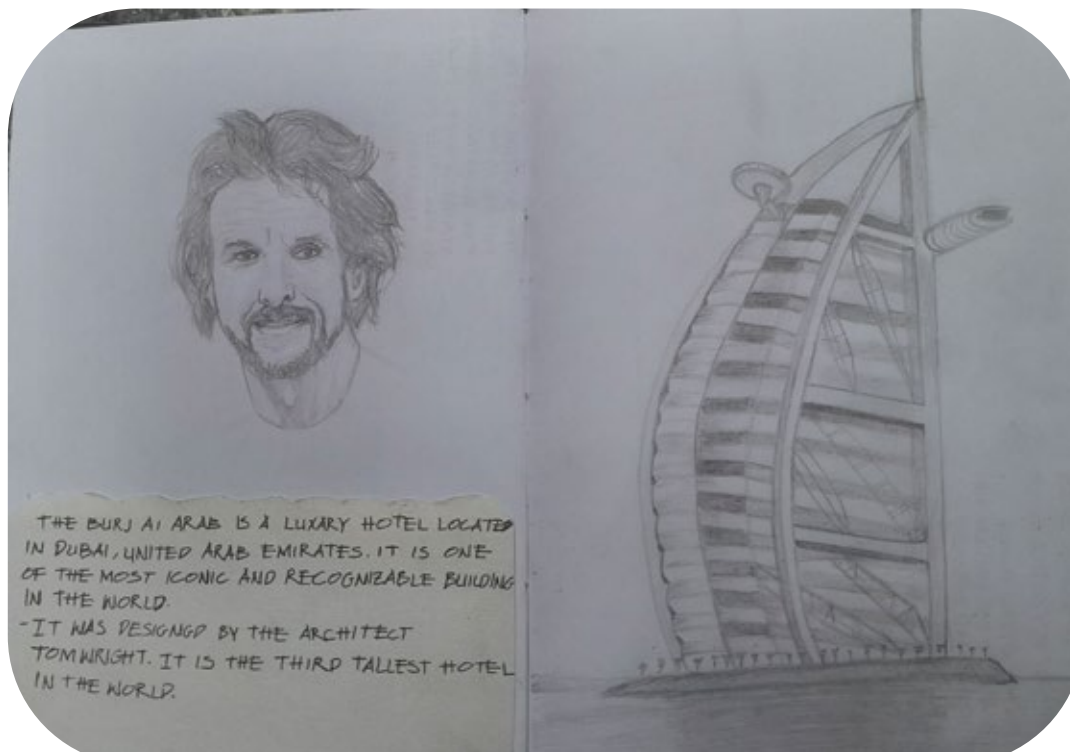 THE BURJ AI ARAB IS A LUXARY HOTEL LOCATED
IN DUBAI, UNITED ARAB EMIRATES. IT IS ONE
OF THE MOST ICONIC AND RECOGNIZABLE BUILDING
IN THE WORLD.
-IT WAS DESIGNGD BY THE ARCHITECT
TOM WRIGHT. IT IS THE THIRD TALLEST HOTEL
IN THE WORLD.